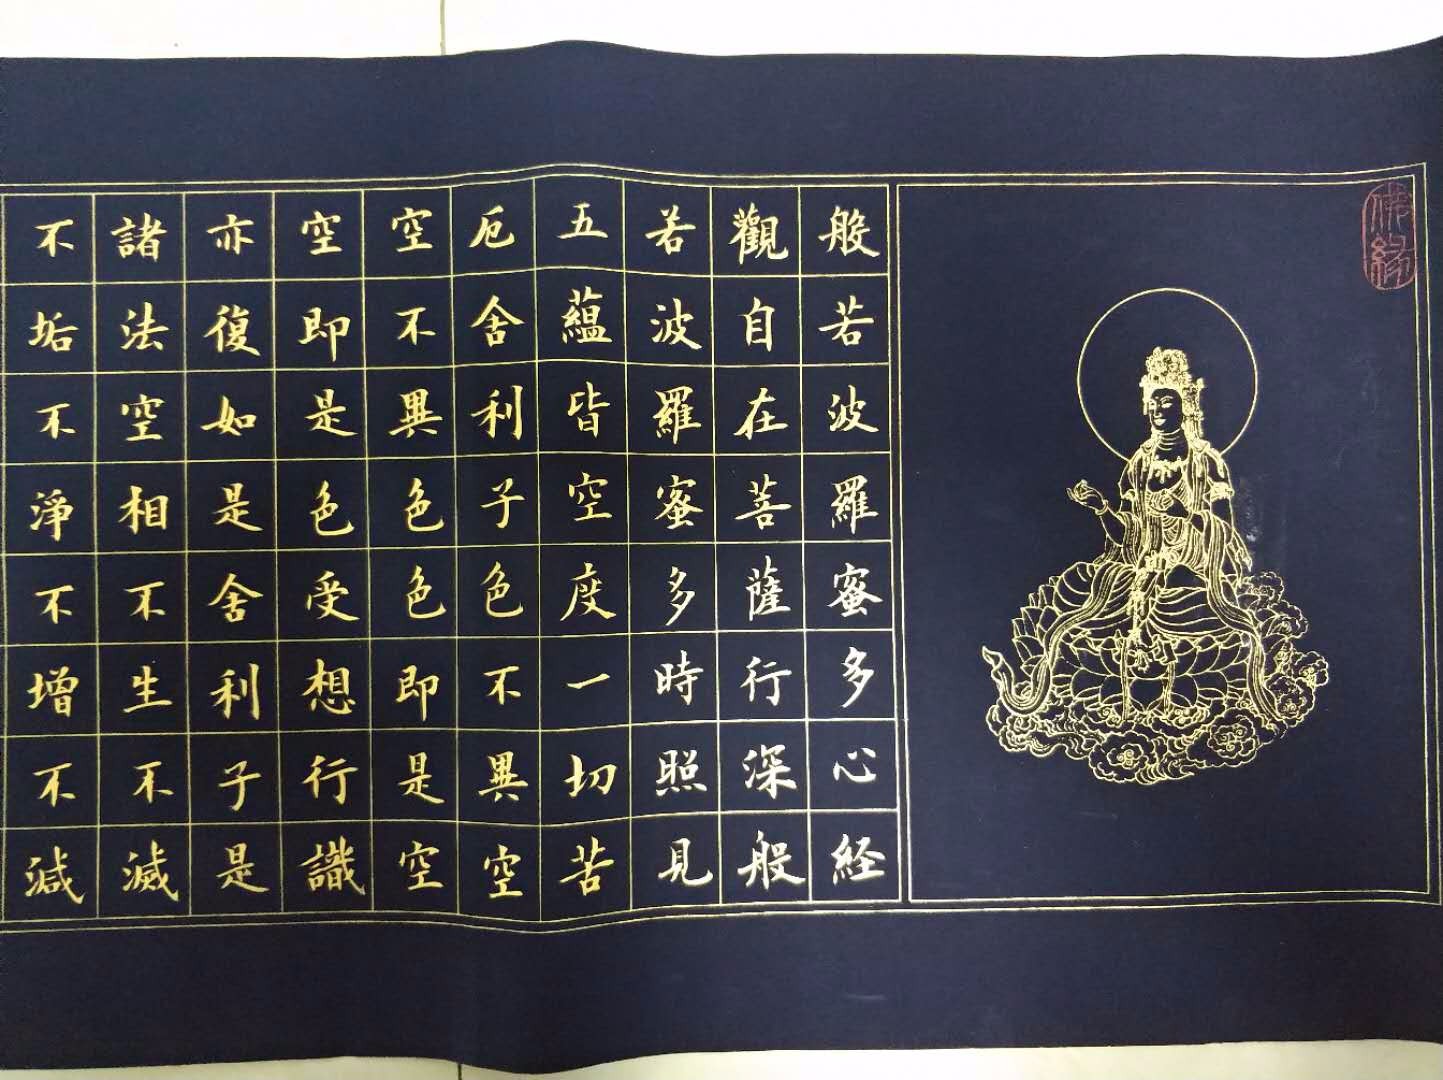 佛緣
般若波羅蜜多心経
觀自在菩薩行深般
若波羅蜜多時照見
五蘊皆空度一切苦
厄舍利子色不異空
空不異色色即是空
空即是色受想行識
亦復如是舍利子是
諸法空相不生不滅
不垢不淨不增不減